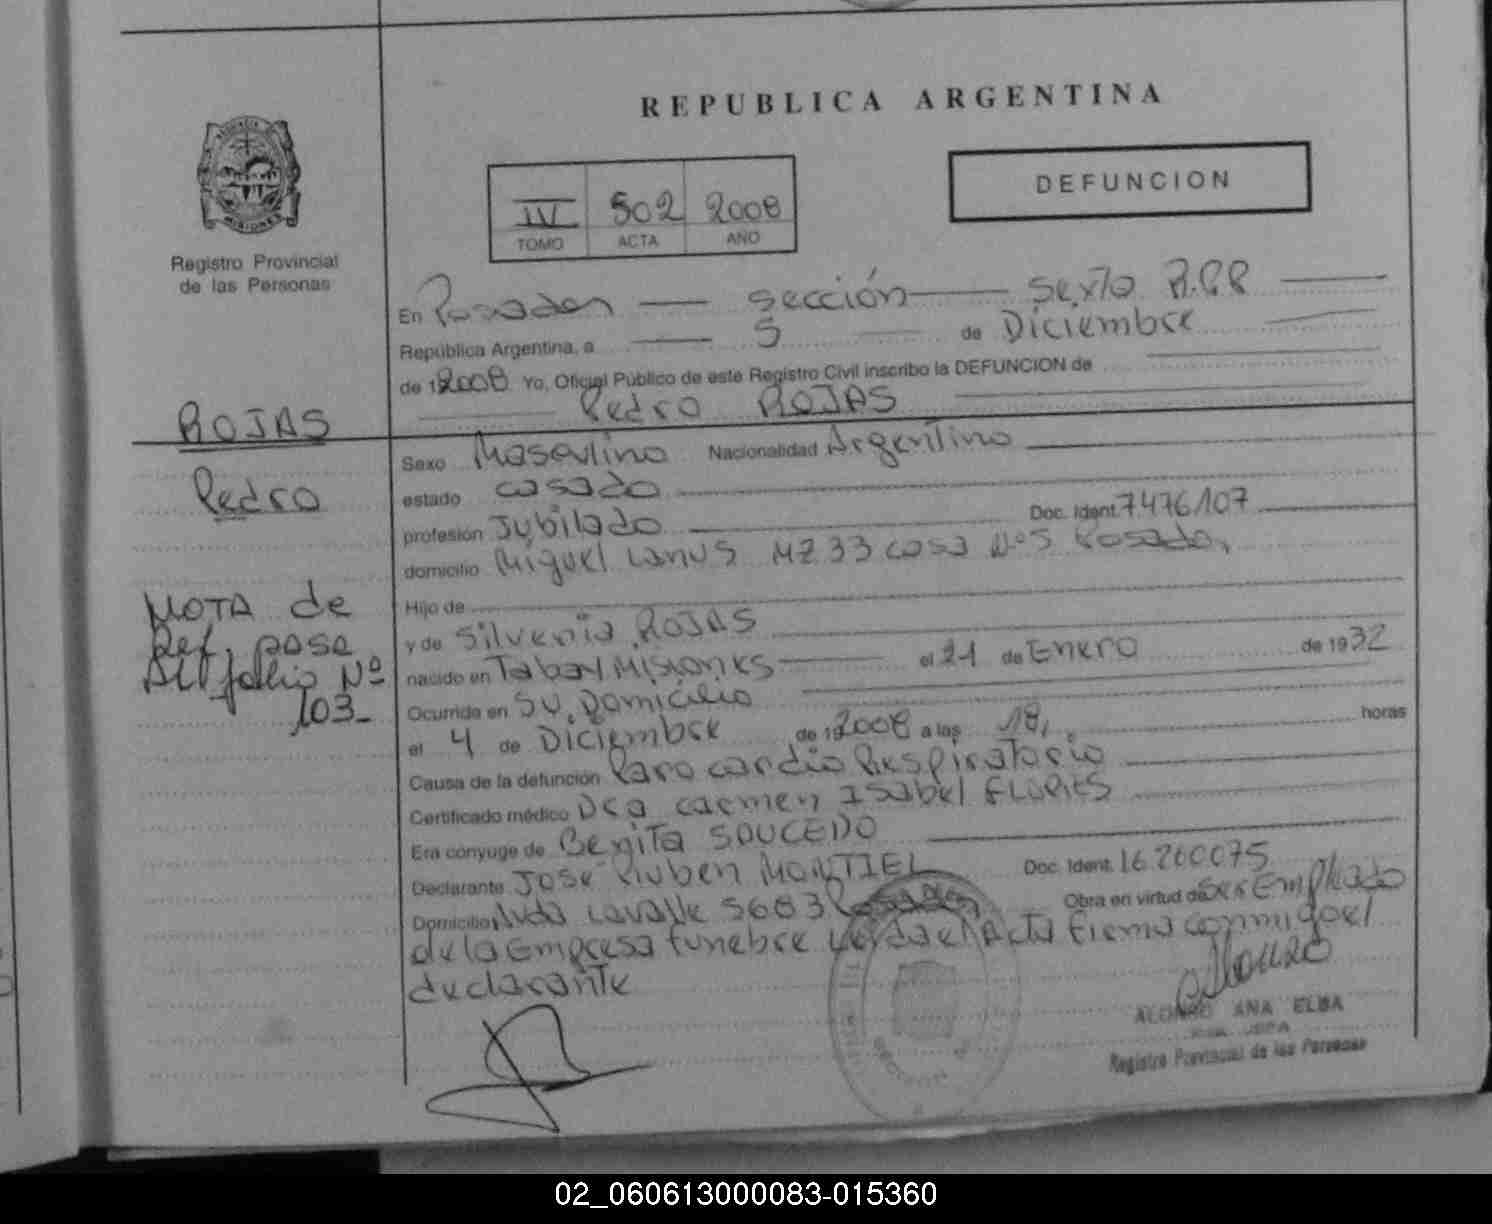 REPUBLICA ARGENTINA
DEFUNCION
IV 502 2008
TOMO ACTA AÑO
MISIONES
Registro Provincial
de las Personas
En Posadas sección Sexto R.P.P
República Argentina, a 5 de Diciembre
de 12008 Yo, Oficial Público de este Registro Civil inscribo la DEFUNCION de
Pedro ROJAS
ROJAS
Pedro
NOTA de
Ref. pasa
Al folio Nº
103-
Sexo Masculino Nacionalidad Argentino
estado casado
profesión Jubilado Doc. Ident. 7.476.107
domicilio Miguel Lanus MZ 33 casa Nº 5 Posadas
Hijo de
y de Silveria ROJAS
nacido en Tabay Misiones el 21 de Enero de 1932
Ocurrida en su Domicilio
el 4 de Diciembre de 12008 a las 18, horas
Causa de la defunción Paro cardio Respiratorio
Certificado médico Dra Carmen Isabel FLORES
Era cónyuge de Benita SAUCEDO
Declarante Jose Ruben MONTIEL Doc. Ident. 16.260075
Domicilio Avda Lavalle 5683 Posadas Obra en virtud de Ser Empleado
de la Empresa funebre Leida el Acta firma conmigo el
declarante
ALONSO ANA ELBA
Registro Provincial de las Personas
02_060613000083-015360